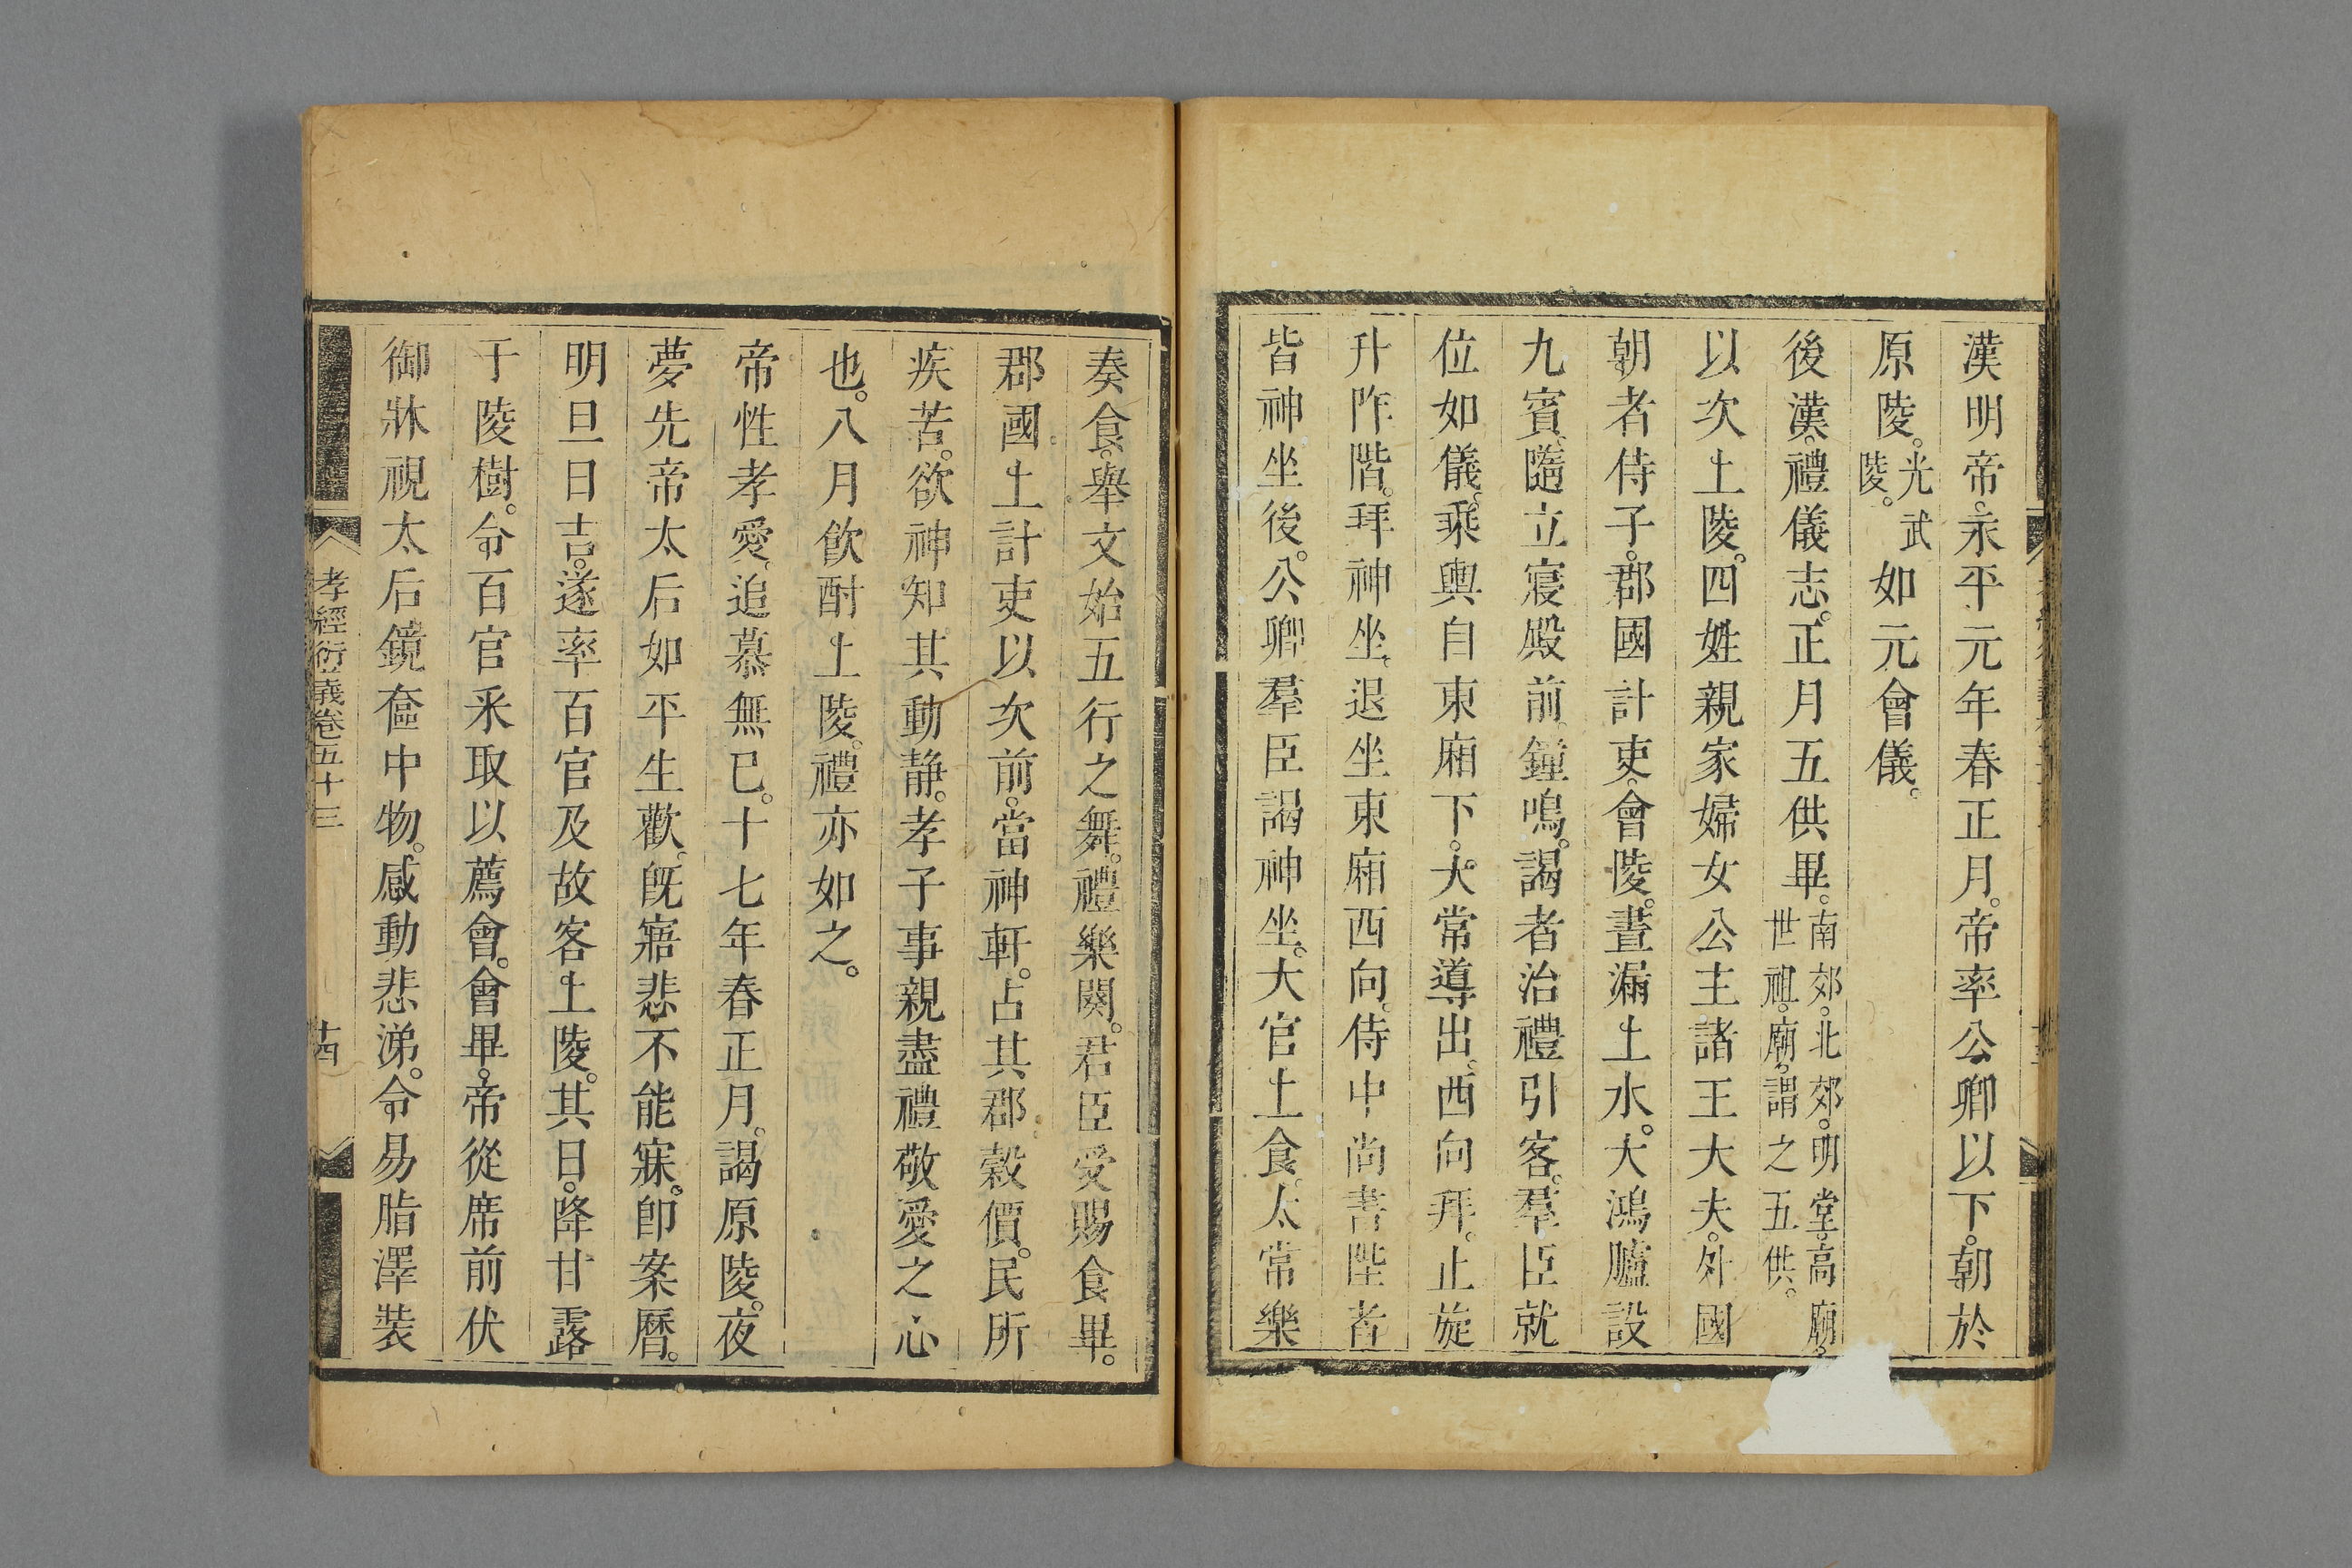 漢明帝。永平元年春正月。帝率公卿以下。朝於
原陵。光武陵。如元會儀。
後漢。禮儀志。正月五供畢。南郊。北郊。明堂。高廟。世祖。廟。謂之五供。
以次上陵。四姓親家婦女公主諸王大夫。外國
朝者侍子。郡國計吏。會陵。晝漏上水。大鴻臚設
九賓。隨立寢殿前。鐘鳴。謁者治禮引客。羣臣就
位如儀。乘輿自東廂下。大常導出。西向拜。止旋
升阼階。拜神坐。退坐東廂西向。侍中尚書陛者
皆神坐後。公卿羣臣謁神坐。大官上食。太常樂
奏食。舉文始五行之舞。禮樂闋。君臣受賜食畢。
郡國上計吏以次前。當神軒。占其郡穀價。民所
疾苦。欲神知其動静。孝子事親盡禮敬愛之心
也。八月飲酎上陵。禮亦如之。
帝性孝愛。追慕無已。十七年春正月。謁原陵。夜
夢先帝太后如平生歡。既寤悲不能寐。卽案曆。
明旦日吉。遂率百官及故客上陵。其日。降甘露
于陵樹。令百官采取以薦會。會畢。帝從席前伏
御牀視太后鏡奩中物。感動悲涕。令易脂澤裝
孝經衍義卷五十三
十四